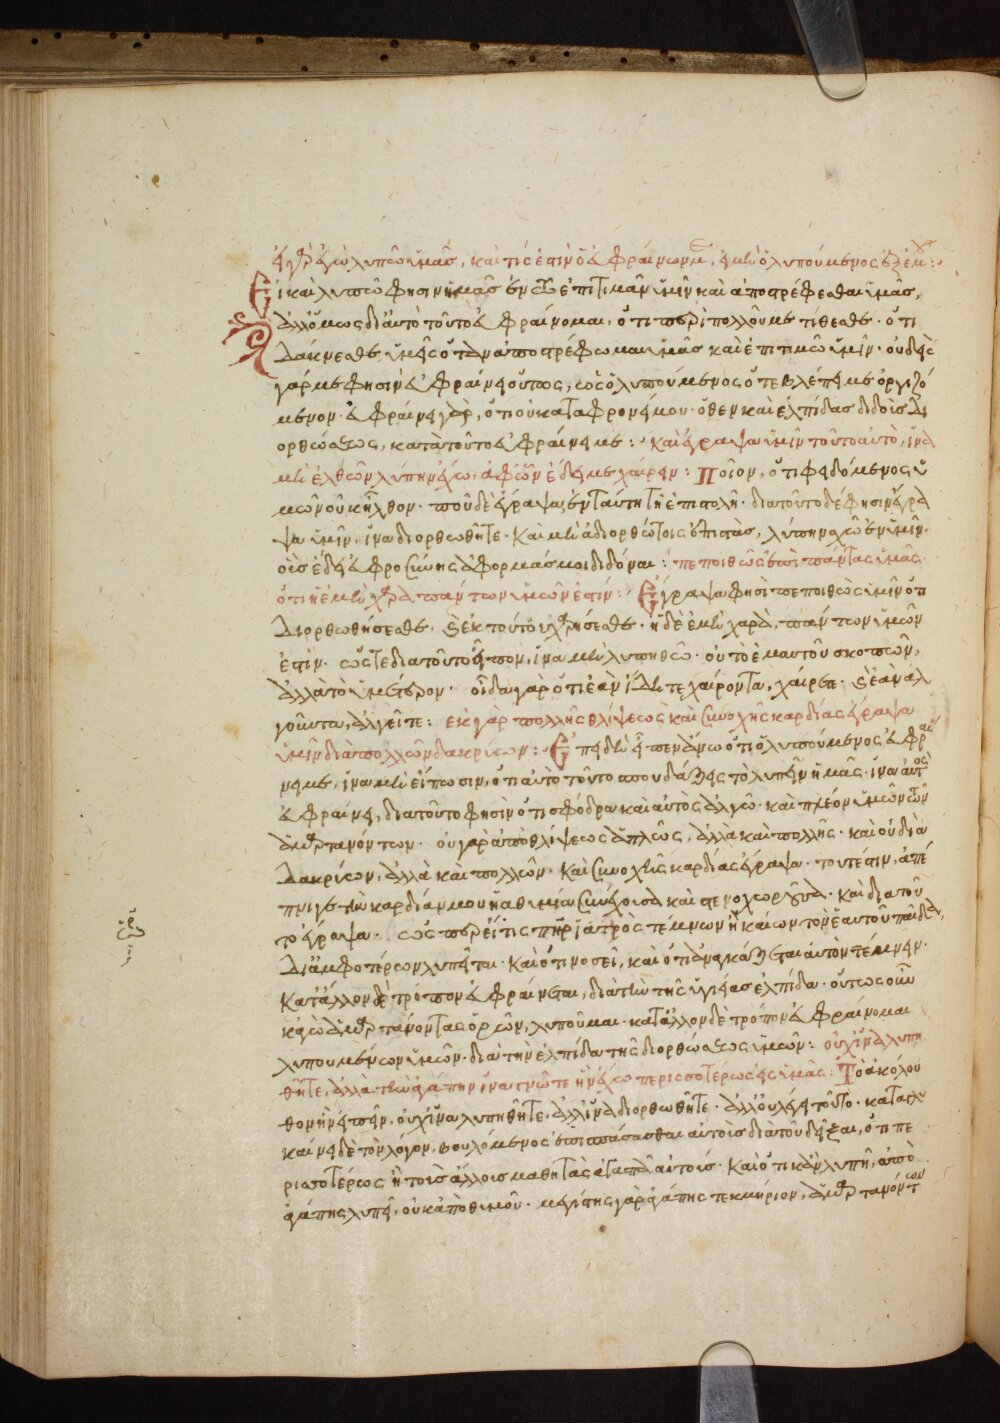 εἰ γὰρ ἐγὼ λυπῶ ὑμᾶς, καὶ τίς ἐστιν ὁ εὐφραίνων με, εἰ μὴ ὁ λυπούμενος ἐξ ἐμοῦ:
Εἰ καὶ λυπῶ φησιν ὑμᾶς ἐν τῷ ἐπιτιμᾶν ὑμῖν καὶ ἀποστρέφεσθαι ὑμᾶς,
ἀλλ' ὅμως δι' αὐτὸ τοῦτο εὐφραίνομαι, ὅτι περὶ πολλοῦ με τίθεσθε· ὅτι
δάκνεσθε ὑμεῖς ὅταν ἀποστρέφωμαι ὑμᾶς καὶ ἐπιτιμῶ ὑμῖν· οὐδεὶς
γάρ με φησὶν εὐφραίνει οὕτως, ὡς ὁ λυπούμενος ὅτε βλέπει με ὀργιζό
μενον· εὐφραίνει γὰρ, ὅτι οὐ καταφρονεῖ μου· ὅθεν καὶ ἐλπίδας διδοὺς δι
ορθώσεως, κατὰ τοῦτο εὐφραίνει με: καὶ ἔγραψα ὑμῖν τοῦτο αὐτὸ, ἵνα
μὴ ἐλθὼν λύπην ἔχω, ἀφ' ὧν ἔδει με χαίρειν: Ποῖον, ὅτι φειδόμενος ὑ
μῶν οὐκ ἦλθον· ποῦ δὲ ἔγραψα, ἐν ταύτῃ τῇ ἐπιστολῇ· διὰ τοῦτο δέ φησιν ἔγρα
ψα ὑμῖν, ἵνα διορθωθῆτε· καὶ μὴ ἀδιορθώτοις ἐπιστὰς, λύπην σχῶ ἐν ὑμῖν·
οἷς ἔδει εὐφροσύνης ἀφορμάς μοι διδόναι: πεποιθὼς ἐπὶ πάντας ὑμᾶς·
ὅτι ἡ ἐμὴ χαρὰ πάντων ὑμῶν ἐστίν: Ἔγραψα φησὶ πεποιθὼς ὑμῖν ὅτι
διορθωθήσεσθε· καὶ ἐκ τούτου χαρήσεσθε· ἡ δὲ ἐμὴ χαρὰ, πάντων ὑμῶν
ἐστίν· ὥστε διὰ τοῦτο εἶπον, ἵνα μὴ λυπηθῶ· οὐ τὸ ἐμαυτοῦ σκοπῶν,
ἀλλὰ τὸ ὑμέτερον· οἶδα γὰρ ὅτι ἐὰν ἴδητε χαίροντα, χαίρετε· καὶ ἐὰν ἀλ
γοῦντα, ἀλγεῖτε: ἐκ γὰρ πολλῆς θλίψεως καὶ συνοχῆς καρδίας ἔγραψα
ὑμῖν διὰ πολλῶν δακρύων: Ἐπειδὴ εἶπεν ἄνω ὅτι ὁ λυπούμενος εὐφραί
νει με, ἵνα μὴ εἴπωσιν, ὅτι αὐτὸ τοῦτο σπουδάζεις τὸ λυπεῖν ἡμᾶς· ἵνα αὐτὸς
εὐφραίνῃ, διὰ τοῦτο φησὶν ὅτι σφόδρα καὶ αὐτὸς ἀλγῶ· καὶ πλέον ὑμῶν τῶν
ἁμαρτανόντων· οὐ γὰρ ἀπὸ θλίψεως ἁπλῶς, ἀλλὰ καὶ πολλῆς· καὶ οὐ διὰ
δακρύων, ἀλλὰ καὶ πολλῶν· καὶ συνοχῆς καρδίας ἔγραψα· τουτέστιν, ἀπέ
πνιγε τὴν καρδίαν μου ἡ ἀθυμία συνέχουσα καὶ στενοχωροῦσα· καὶ διὰ τοῦ
το ἔγραψα· ὥσπερ εἴ τις πατὴρ ἰατρὸς τέμνων ἢ καίων τὸν ἑαυτοῦ παῖδα,
δι' ἀμφοτέρων λυπεῖται· καὶ ὅτι νοσεῖ, καὶ ὅτι ἀναγκάζεται αὐτὸν τέμνειν·
κατ' ἄλλον δὲ τρόπον εὐφραίνεται, διὰ τὴν τῆς ὑγιείας ἐλπίδα· οὕτως οὖν
κἀγὼ ἁμαρτάνοντας ὁρῶν, λυποῦμαι· κατ' ἄλλον δὲ τρόπον εὐφραίνομαι
λυπουμένων ὑμῶν· διὰ τὴν ἐλπίδα τῆς διορθώσεως ὑμῶν: οὐχ ἵνα λυπη
θῆτε, ἀλλὰ τὴν ἀγάπην ἵνα γνῶτε ἣν ἔχω περισσοτέρως εἰς ὑμᾶς: Τὸ ἀκόλου
θον ἦν εἰπεῖν, οὐχ ἵνα λυπηθῆτε, ἀλλ' ἵνα διορθωθῆτε· ἀλλ' οὐ λέγει τοῦτο· καταγλυ
καίνει δὲ τὸν λόγον, βουλόμενος ἐπισπάσασθαι αὐτοὺς διὰ τοῦ δεῖξαι, ὅτι πε
ρισσοτέρως ἢ τοὺς ἄλλους μαθητὰς ἀγαπᾷ αὐτούς· καὶ ὅτι κἂν λυπῇ, ἀπὸ
ἀγάπης λυπεῖ, οὐκ ἀπὸ θυμοῦ· μεγίστης γὰρ ἀγάπης τεκμήριον, ἁμαρτανόντων